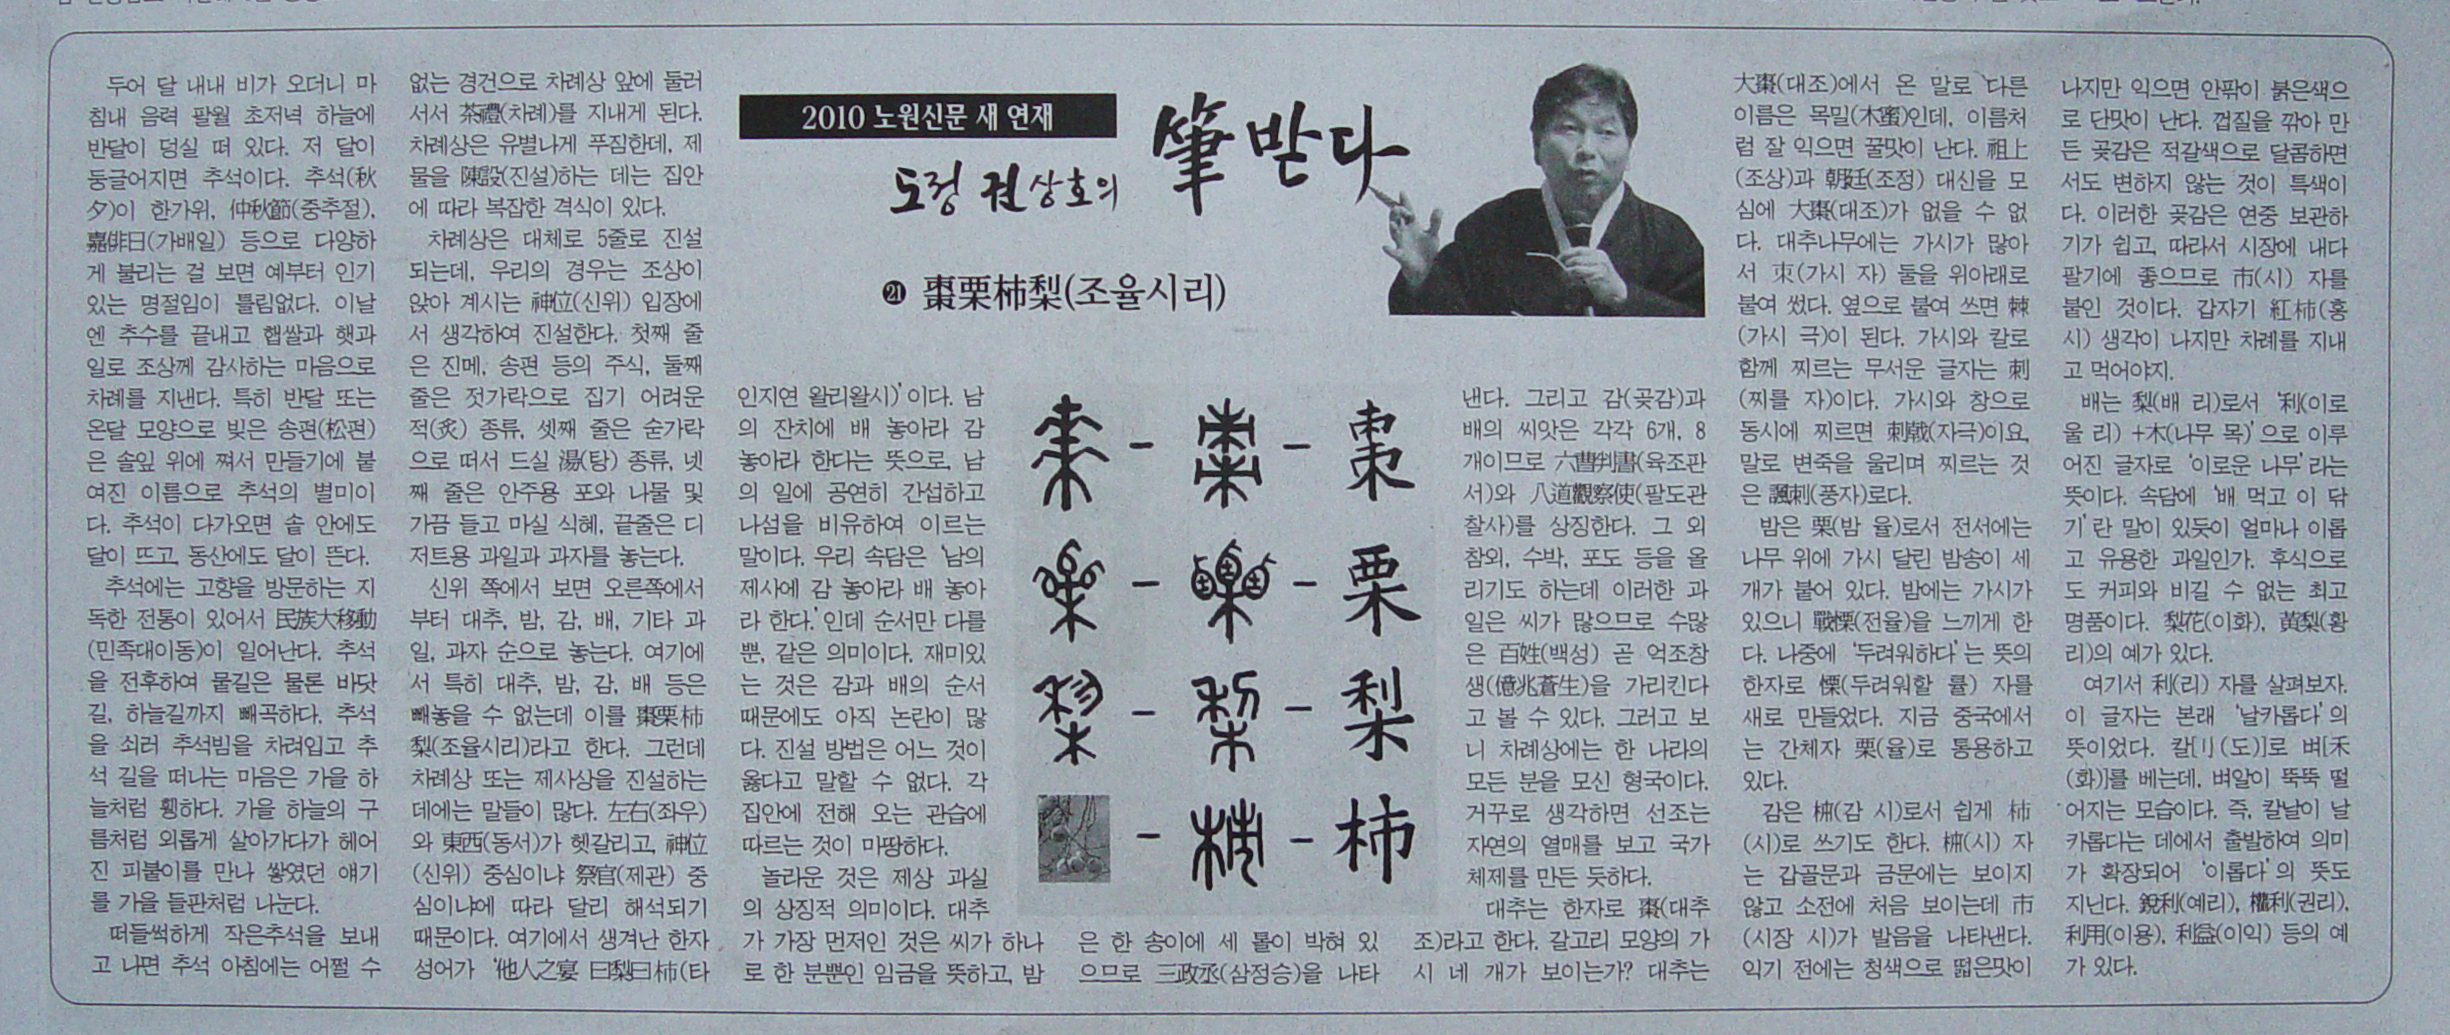 2010 노원신문 새 연재
도정 권상호의
筆 받다
㉑ 棗栗柿梨(조율시리)
두어 달 내내 비가 오더니 마
침내 음력 팔월 초저녁 하늘에
반달이 덩실 떠 있다. 저 달이
둥글어지면 추석이다. 추석(秋
夕)이 한가위, 仲秋節(중추절),
嘉俳日(가배일) 등으로 다양하
게 불리는 걸 보면 예부터 인기
있는 명절임이 틀림없다. 이날
엔 추수를 끝내고 햅쌀과 햇과
일로 조상께 감사하는 마음으로
차례를 지낸다. 특히 반달 또는
온달 모양으로 빚은 송편(松편)
은 솔잎 위에 쪄서 만들기에 붙
여진 이름으로 추석의 별미이
다. 추석이 다가오면 솥 안에도
달이 뜨고, 동산에도 달이 뜬다.
추석에는 고향을 방문하는 지
독한 전통이 있어서 民族大移動
(민족대이동)이 일어난다. 추석
을 전후하여 뭍길은 물론 바닷
길, 하늘길까지 빼곡하다. 추석
을 쇠러 추석빔을 차려입고 추
석 길을 떠나는 마음은 가을 하
늘처럼 휑하다. 가을 하늘의 구
름처럼 외롭게 살아가다가 헤어
진 피붙이를 만나 쌓였던 얘기
를 가을 들판처럼 나눈다.
떠들썩하게 작은추석을 보내
고 나면 추석 아침에는 어쩔 수
없는 경건으로 차례상 앞에 둘러
서서 茶禮(차례)를 지내게 된다.
차례상은 유별나게 푸짐한데, 제
물을 陳設(진설)하는 데는 집안
에 따라 복잡한 격식이 있다.
차례상은 대체로 5줄로 진설
되는데, 우리의 경우는 조상이
앉아 계시는 神位(신위) 입장에
서 생각하여 진설한다. 첫째 줄
은 진메, 송편 등의 주식, 둘째
줄은 젓가락으로 집기 어려운
적(炙) 종류, 셋째 줄은 숟가락
으로 떠서 드실 湯(탕) 종류, 넷
째 줄은 안주용 포와 나물 및
가끔 들고 마실 식혜, 끝줄은 디
저트용 과일과 과자를 놓는다.
신위 쪽에서 보면 오른쪽에서
부터 대추, 밤, 감, 배, 기타 과
일, 과자 순으로 놓는다. 여기에
서 특히 대추, 밤, 감, 배 등은
빼놓을 수 없는데 이를 棗栗柿
梨(조율시리)라고 한다. 그런데
차례상 또는 제사상을 진설하는
데에는 말들이 많다. 左右(좌우)
와 東西(동서)가 헷갈리고, 神位
(신위) 중심이냐 祭官(제관) 중
심이냐에 따라 달리 해석되기
때문이다. 여기에서 생겨난 한자
성어가 '他人之宴 曰梨曰柿(타
인지연 왈리왈시)'이다. 남
의 잔치에 배 놓아라 감
놓아라 한다는 뜻으로, 남
의 일에 공연히 간섭하고
나섬을 비유하여 이르는
말이다. 우리 속담은 '남의
제사에 감 놓아라 배 놓아
라 한다.'인데 순서만 다를
뿐, 같은 의미이다. 재미있
는 것은 감과 배의 순서
때문에도 아직 논란이 많
다. 진설 방법은 어느 것이
옳다고 말할 수 없다. 각
집안에 전해 오는 관습에
따르는 것이 마땅하다.
놀라운 것은 제상 과실
의 상징적 의미이다. 대추
가 가장 먼저인 것은 씨가 하나
로 한 분뿐인 임금을 뜻하고, 밤
은 한 송이에 세 톨이 박혀 있
으므로 三政丞(삼정승)을 나타
낸다. 그리고 감(곶감)과
배의 씨앗은 각각 6개, 8
개이므로 六曹判書(육조판
서)와 八道觀察使(팔도관
찰사)를 상징한다. 그 외
참외, 수박, 포도 등을 올
리기도 하는데 이러한 과
일은 씨가 많으므로 수많
은 百姓(백성) 곧 억조창
생(億兆蒼生)을 가리킨다
고 볼 수 있다. 그러고 보
니 차례상에는 한 나라의
모든 분을 모신 형국이다.
거꾸로 생각하면 선조는
자연의 열매를 보고 국가
체제를 만든 듯하다.
대추는 한자로 棗(대추
조)라고 한다. 갈고리 모양의 가
시 네 개가 보이는가? 대추는
大棗(대조)에서 온 말로 다른
이름은 목밀(木蜜)인데, 이름처
럼 잘 익으면 꿀맛이 난다. 祖上
(조상)과 朝廷(조정) 대신을 모
심에 大棗(대조)가 없을 수 없
다. 대추나무에는 가시가 많아
서 朿(가시 자) 둘을 위아래로
붙여 썼다. 옆으로 붙여 쓰면 棘
(가시 극)이 된다. 가시와 칼로
함께 찌르는 무서운 글자는 刺
(찌를 자)이다. 가시와 창으로
동시에 찌르면 刺戟(자극)이요,
말로 변죽을 울리며 찌르는 것
은 諷刺(풍자)로다.
밤은 栗(밤 율)로서 전서에는
나무 위에 가시 달린 밤송이 세
개가 붙어 있다. 밤에는 가시가
있으니 戰慄(전율)을 느끼게 한
다. 나중에 '두려워하다'는 뜻의
한자로 慄(두려워할 률) 자를
새로 만들었다. 지금 중국에서
는 간체자 栗(율)로 통용하고
있다.
감은 枾(감 시)로서 쉽게 柿
(시)로 쓰기도 한다. 枾(시) 자
는 갑골문과 금문에는 보이지
않고 소전에 처음 보이는데 市
(시장 시)가 발음을 나타낸다.
익기 전에는 청색으로 떫은맛이
나지만 익으면 안팎이 붉은색으
로 단맛이 난다. 껍질을 깎아 만
든 곶감은 적갈색으로 달콤하면
서도 변하지 않는 것이 특색이
다. 이러한 곶감은 연중 보관하
기가 쉽고, 따라서 시장에 내다
팔기에 좋으므로 市(시) 자를
붙인 것이다. 갑자기 紅柿(홍
시) 생각이 나지만 차례를 지내
고 먹어야지.
배는 梨(배 리)로서 '利(이로
울 리) +木(나무 목)'으로 이루
어진 글자로 '이로운 나무'라는
뜻이다. 속담에 '배 먹고 이 닦
기'란 말이 있듯이 얼마나 이롭
고 유용한 과일인가. 후식으로
도 커피와 비길 수 없는 최고
명품이다. 梨花(이화), 黃梨(황
리)의 예가 있다.
여기서 利(리) 자를 살펴보자.
이 글자는 본래 '날카롭다'의
뜻이었다. 칼[刂(도)]로 벼[禾
(화)]를 베는데, 벼알이 뚝뚝 떨
어지는 모습이다. 즉, 칼날이 날
카롭다는 데에서 출발하여 의미
가 확장되어 '이롭다'의 뜻도
지닌다. 銳利(예리), 權利(권리),
利用(이용), 利益(이익) 등의 예
가 있다.
棗
栗
梨
柿